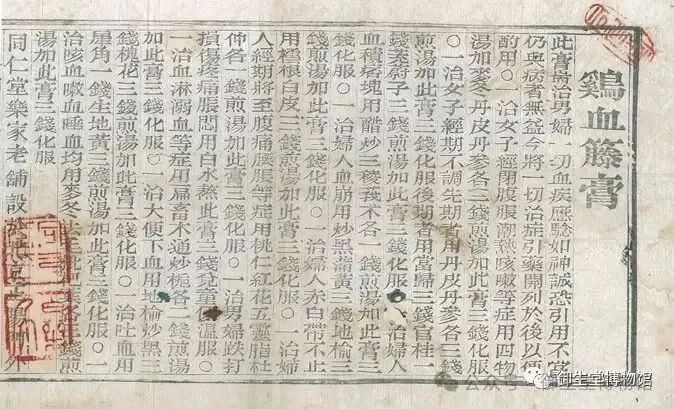 鷄血籐膏
此膏耑治男婦一切血疾應驗如神誠恐引用不當
仍與病者無益今將一切治症引藥開列於後以便
酌用○一治女子經閉腹脹潮熱咳嗽等症用四物
湯加麥冬丹皮丹參各三錢煎湯加此膏三錢化服
○一治女子經期不調先期者用丹皮丹參各三錢
煎湯加此膏三錢化服後期者用當歸三錢官桂一
錢茺蔚子三錢煎湯加此膏三錢化服○一治婦人
血積痞塊用醋炒三稜莪朮各一錢煎湯加此膏三
錢化服○一治婦人血崩用炒黑蒲黃三錢地榆三
錢煎湯加此膏三錢化服○一治婦人赤白帶不止
用樗根白皮二錢煎湯加此膏三錢化服○一治婦
人經期將至腹痛腰脹等症用桃仁紅花五靈脂杜
仲各一錢煎湯加此膏三錢化服○一治男婦跌打
損傷疼痛脹悶用白水熬此膏三錢兌童便溫服○
一治血淋溺血等症用萹蓄木通炒梔各二錢煎湯
加此膏三錢化服○一治大便下血用地榆炒黑三
錢槐花三錢煎湯加此膏三錢化服○一治吐血用
犀角一錢生地黃三錢煎湯加此膏三錢化服○一
治咳血嗽血唾血均用麥冬去心枇杷葉各三錢煎
湯加此膏三錢化服
同仁堂樂家老舖設
御生堂博物馆